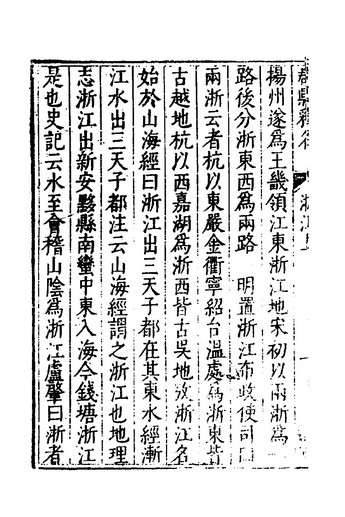 郡縣釋名 浙江
揚州遂爲王畿領江東浙江地宋初以兩浙爲一
路後分浙東西爲兩路 明置浙江布政使司曰
兩浙云者杭以東嚴金衢寧紹台溫處爲浙東皆
古越地杭以西嘉湖爲浙西皆古吳地攷浙江名
始於山海經曰浙江出三天子都在其東水經漸
江水出三天子都注云山海經謂之浙江也地理
志浙江出新安黟縣南蠻中東入海今錢塘浙江
是也史記云水至會稽山陰爲浙江盧肇曰浙者